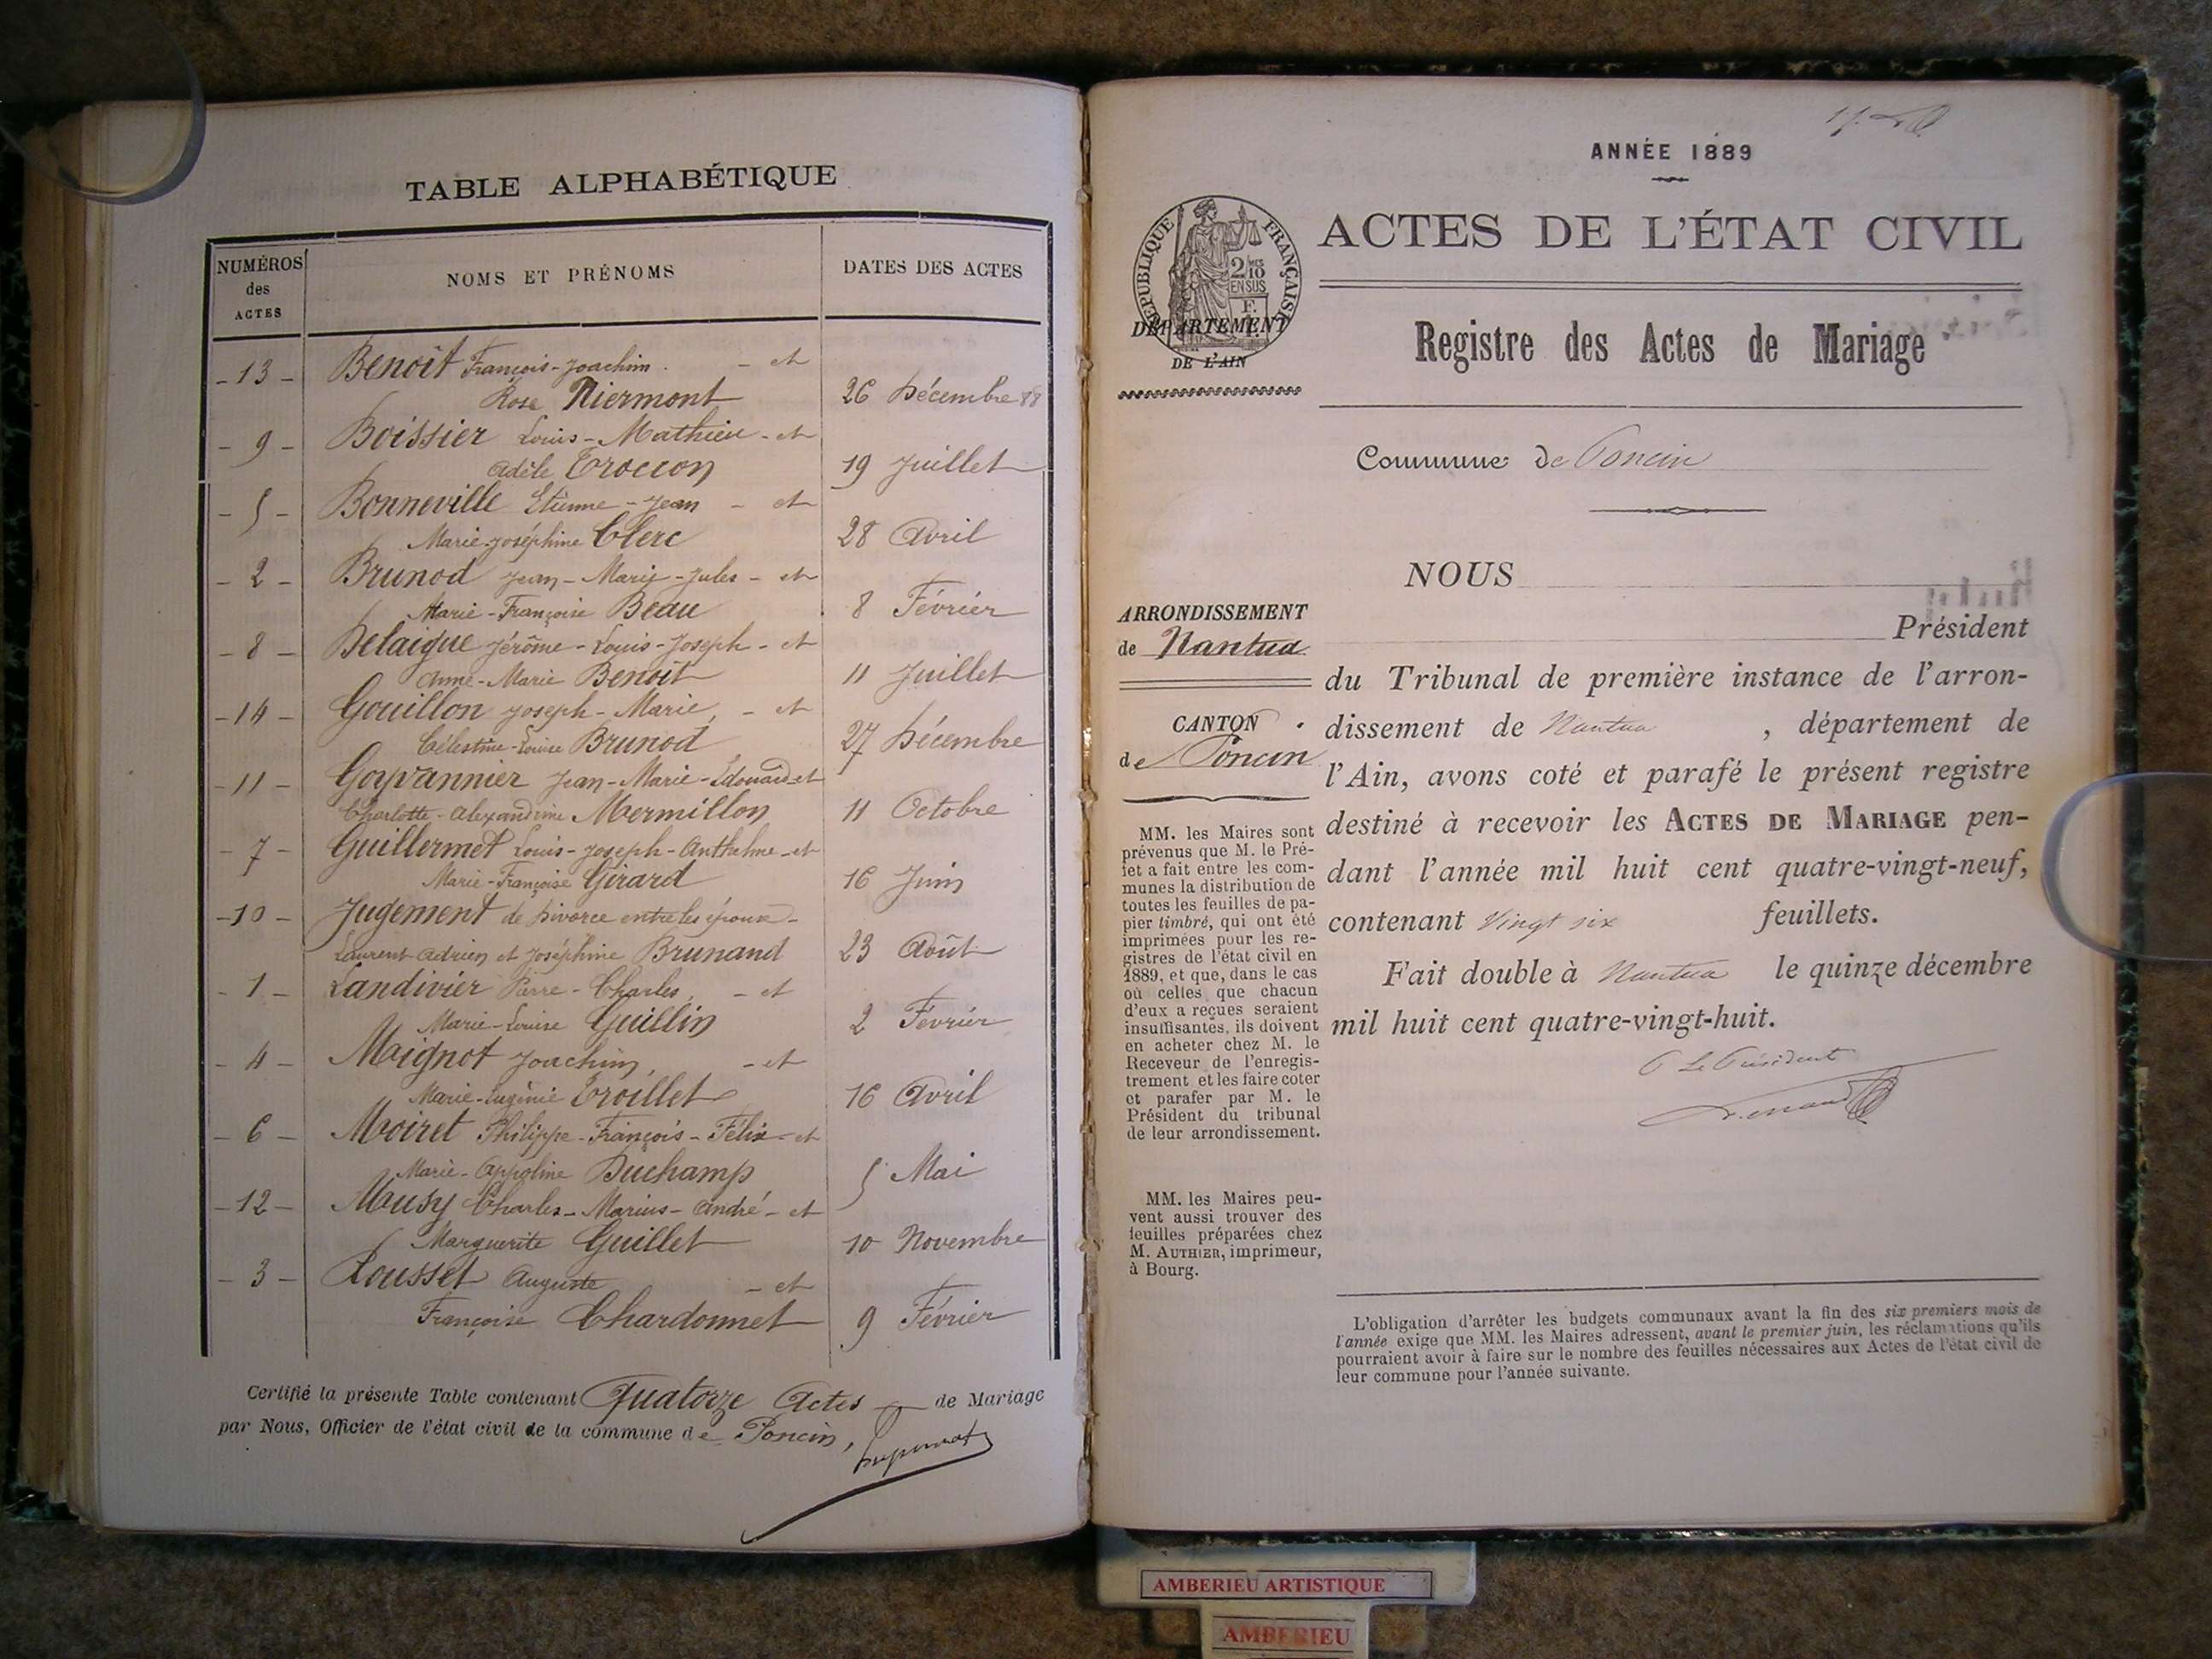 TABLE ALPHABÉTIQUE
NUMÉROS des ACTES
NOMS ET PRÉNOMS
DATES DES ACTES
- 13 - Benoît François-Joachim - et
Rose Niermont 26 Décembre 88
- 9 - Boissier Louis-Mathieu - et
Adèle Troccon 19 Juillet
- 5 - Bonneville Etienne-Jean - et
Marie-Joséphine Clerc 28 Avril
- 2 - Brunod Jean-Marie-Jules - et
Marie-Françoise Beau 8 Février
- 8 - Delaigue Jérôme-Louis-Joseph - et
Anne-Marie Benoit 11 Juillet
- 14 - Gouillon Joseph-Marie, - et
Célestine-Louise Brunod 27 Décembre
- 11 - Goyvannier Jean-Marie-Edouard et
Charlotte-Alexandrine Mermillon 11 Octobre
- 7 - Guillermet Louis-Joseph-Anthelme - et
Marie-Françoise Girard 16 Juin
- 10 - Jugement de Divorce entre les époux -
Laurent Adrien et Joséphine Brunand 23 Août
- 1 - Landivier Pierre-Charles, - et
Marie-Louise Guillin 2 Février
- 4 - Maignot Joachim, - et
Marie-Eugénie Troillet 16 Avril
- 6 - Moiret Philippe-François-Félix - et
Marie-Appoline Duchamp 5 Mai
- 12 - Musy Charles-Marius-André - et
Marguerite Guillet 10 Novembre
- 3 - Rousset Auguste - et
Françoise Chardonnet 9 Février
Certifié la présente Table contenant Quatorze Actes de Mariage
par Nous, Officier de l'état civil de la commune de Poncin,
ANNÉE 1889
RÉPUBLIQUE FRANÇAISE
2/10 EN SUS
F.
DÉPARTEMENT
DE L'AIN
ACTES DE L'ÉTAT CIVIL
Registre des Actes de Mariage
Commune de Poncin
ARRONDISSEMENT
de Nantua
CANTON
de Poncin
MM. les Maires sont
prévenus que M. le Pré-
fet a fait entre les com-
munes la distribution de
toutes les feuilles de pa-
pier timbré, qui ont été
imprimées pour les re-
gistres de l'état civil en
1889, et que, dans le cas
où celles que chacun
d'eux a reçues seraient
insuffisantes, ils doivent
en acheter chez M. le
Receveur de l'enregis-
trement et les faire coter
et parafer par M. le
Président du tribunal
de leur arrondissement.
MM. les Maires peu-
vent aussi trouver des
feuilles préparées chez
M. AUTHIER, imprimeur,
à Bourg.
NOUS
Président
du Tribunal de première instance de l'arron-
dissement de Nantua , département de
l'Ain, avons coté et parafé le présent registre
destiné à recevoir les ACTES DE MARIAGE pen-
dant l'année mil huit cent quatre-vingt-neuf,
contenant Vingt six feuillets.
Fait double à Nantua le quinze décembre
mil huit cent quatre-vingt-huit.
P Le Président
L'obligation d'arrêter les budgets communaux avant la fin des six premiers mois de
l'année exige que MM. les Maires adressent, avant le premier juin, les réclamations qu'ils
pourraient avoir à faire sur le nombre des feuilles nécessaires aux Actes de l'état civil de
leur commune pour l'année suivante.
AMBERIEU ARTISTIQUE
AMBERIEU